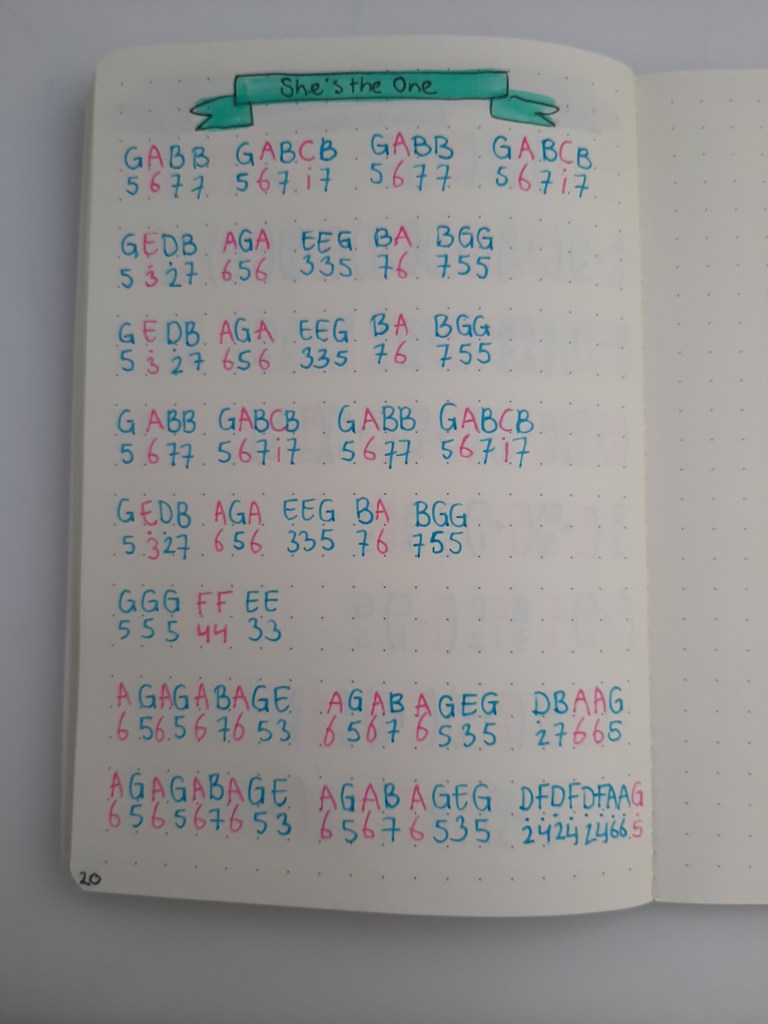 She's the One
GABB GABCB GABB GABCB
5677 567i7 5677 567i7
GEDB AGA EEG BA BGG
5327 656 335 76 755
GEDB AGA EEG BA BGG
5327 656 335 76 755
GABB GABCB GABB GABCB
5677 567i7 5677 567i7
GEDB AGA EEG BA BGG
5327 656 335 76 755
GGG FF EE
555 44 33
AGAGABAGE AGABAGEG DBAAG
656567653 65676535 27665
AGAGABAGE AGABAGEG DFDFDFAAG
656567653 65676535 242424665
20